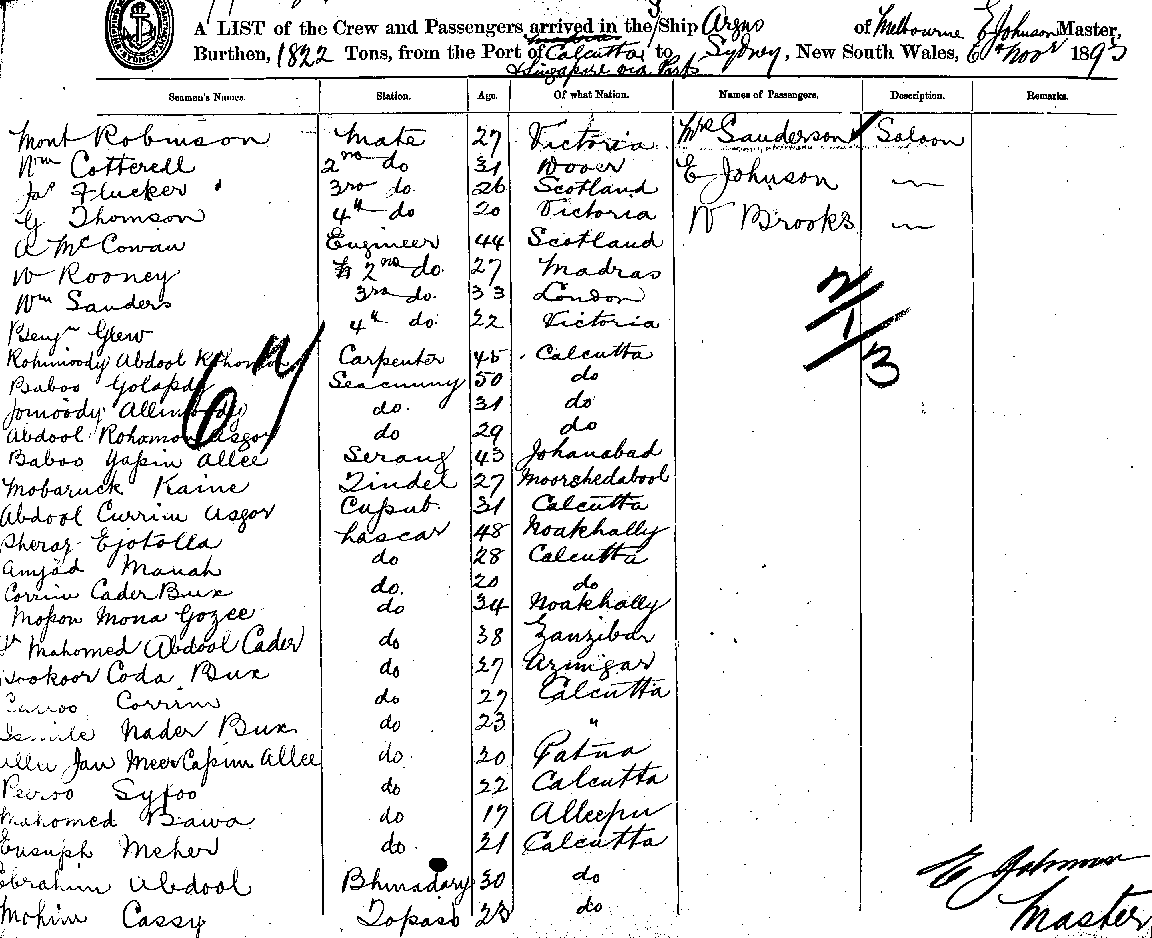 A LIST of the Crew and Passengers arrived in the Ship Argus of Melbourne E Johnson Master,
Burthen, 1822 Tons, from the Port of Calcutta to Sydney, New South Wales, 6th Novr 1893
& Singapore via Ports
Seamen's Names. Station. Age. Of what Nation. Names of Passengers. Description. Remarks.
Mont Robinson Mate 27 Victoria Mrs Sanderson Saloon
Wm Cotterell 2nd do 31 Dover E Johnson
Jas Flucker 3rd do 26 Scotland
G Thomson 4th do 20 Victoria W Brooks
A McCowan Engineer 44 Scotland
W Rooney 2nd do. 27 Madras
Wm Sanders 3rd do. 33 London
Benjn Glew 4th do. 22 Victoria
Rohimoody Abdool Carpenter 45 Calcutta
Baboo Golapdy Seacunny 50 do
Jomoody Allimoody do. 31 do
Abdool Rohamon Asgor do 29 do
Baboo Yasin Allee Serang 43 Johanabad
Mobaruck Kaine Tindel 27 Moorshedabool
Abdool Currim Asgor Cussub. 31 Calcutta
Sheraz Ejotolla Lascar 48 Noakhally
Amjad Manah do 28 Calcutta
Corrim Cader Bux do. 20 do
Moson Mona Gozee do 34 Noakhally
Mahomed Abdool Cader do 38 Zanzibar
Coda Bux do 27 Azimgar
Corrim do 27 Calcutta
Nader Bux do 23 "
Jan Meer Cassim Allee do. 20 Patna
Peiroo Syfoo do 22 Calcutta
Mahomed Bawa do 17 Alleepu
Eusuph Meher do. 21 Calcutta
Ebrahim Abdool Bhundary 30 do
Mohim Cassy Topass 28 do
67
2/1/3
E Johnson
Master